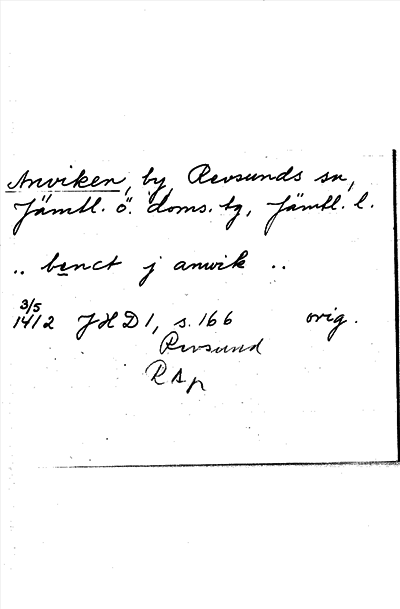 Anviken, by, Revsunds sn,
Jämtl. ö. doms. tg, Jämtl. l.
.. benct j anwik ..
3/5
1412 JHD 1, s. 166 orig.
Revsund
RAp